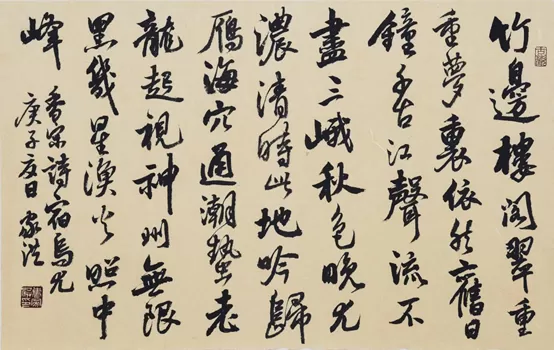 竹邊樓阁翠重
重夢裏依然舊日
鐘千古江聲流不
盡三峨秋色晚尤
濃清時此地吟歸
雁海穴通潮蟄老
龍起視神州無限
黑幾星漁火照中
峰
香宋詩宿烏尤
庚子夏日家浩